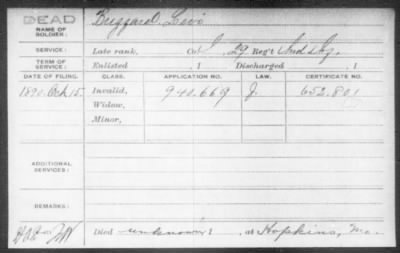 DEAD
NAME OF SOLDIER:
Buzzard, Levi
SERVICE: Late rank, Co. I, 29 Reg't Ind. Inf.
TERM OF SERVICE: Enlisted , 1 Discharged , 1
DATE OF FILING. CLASS. APPLICATION NO. LAW. CERTIFICATE NO.
1890. Oct 15. Invalid, 940.669 J. 652.801
Widow,
Minor,
ADDITIONAL SERVICES:
REMARKS:
Died unknown 1 , at Hopkins, Mo.